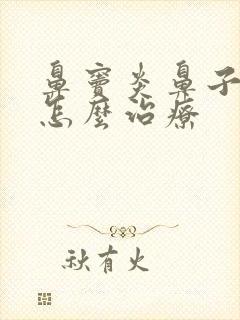 鼻窦炎鼻子
怎麼治療
秋有火